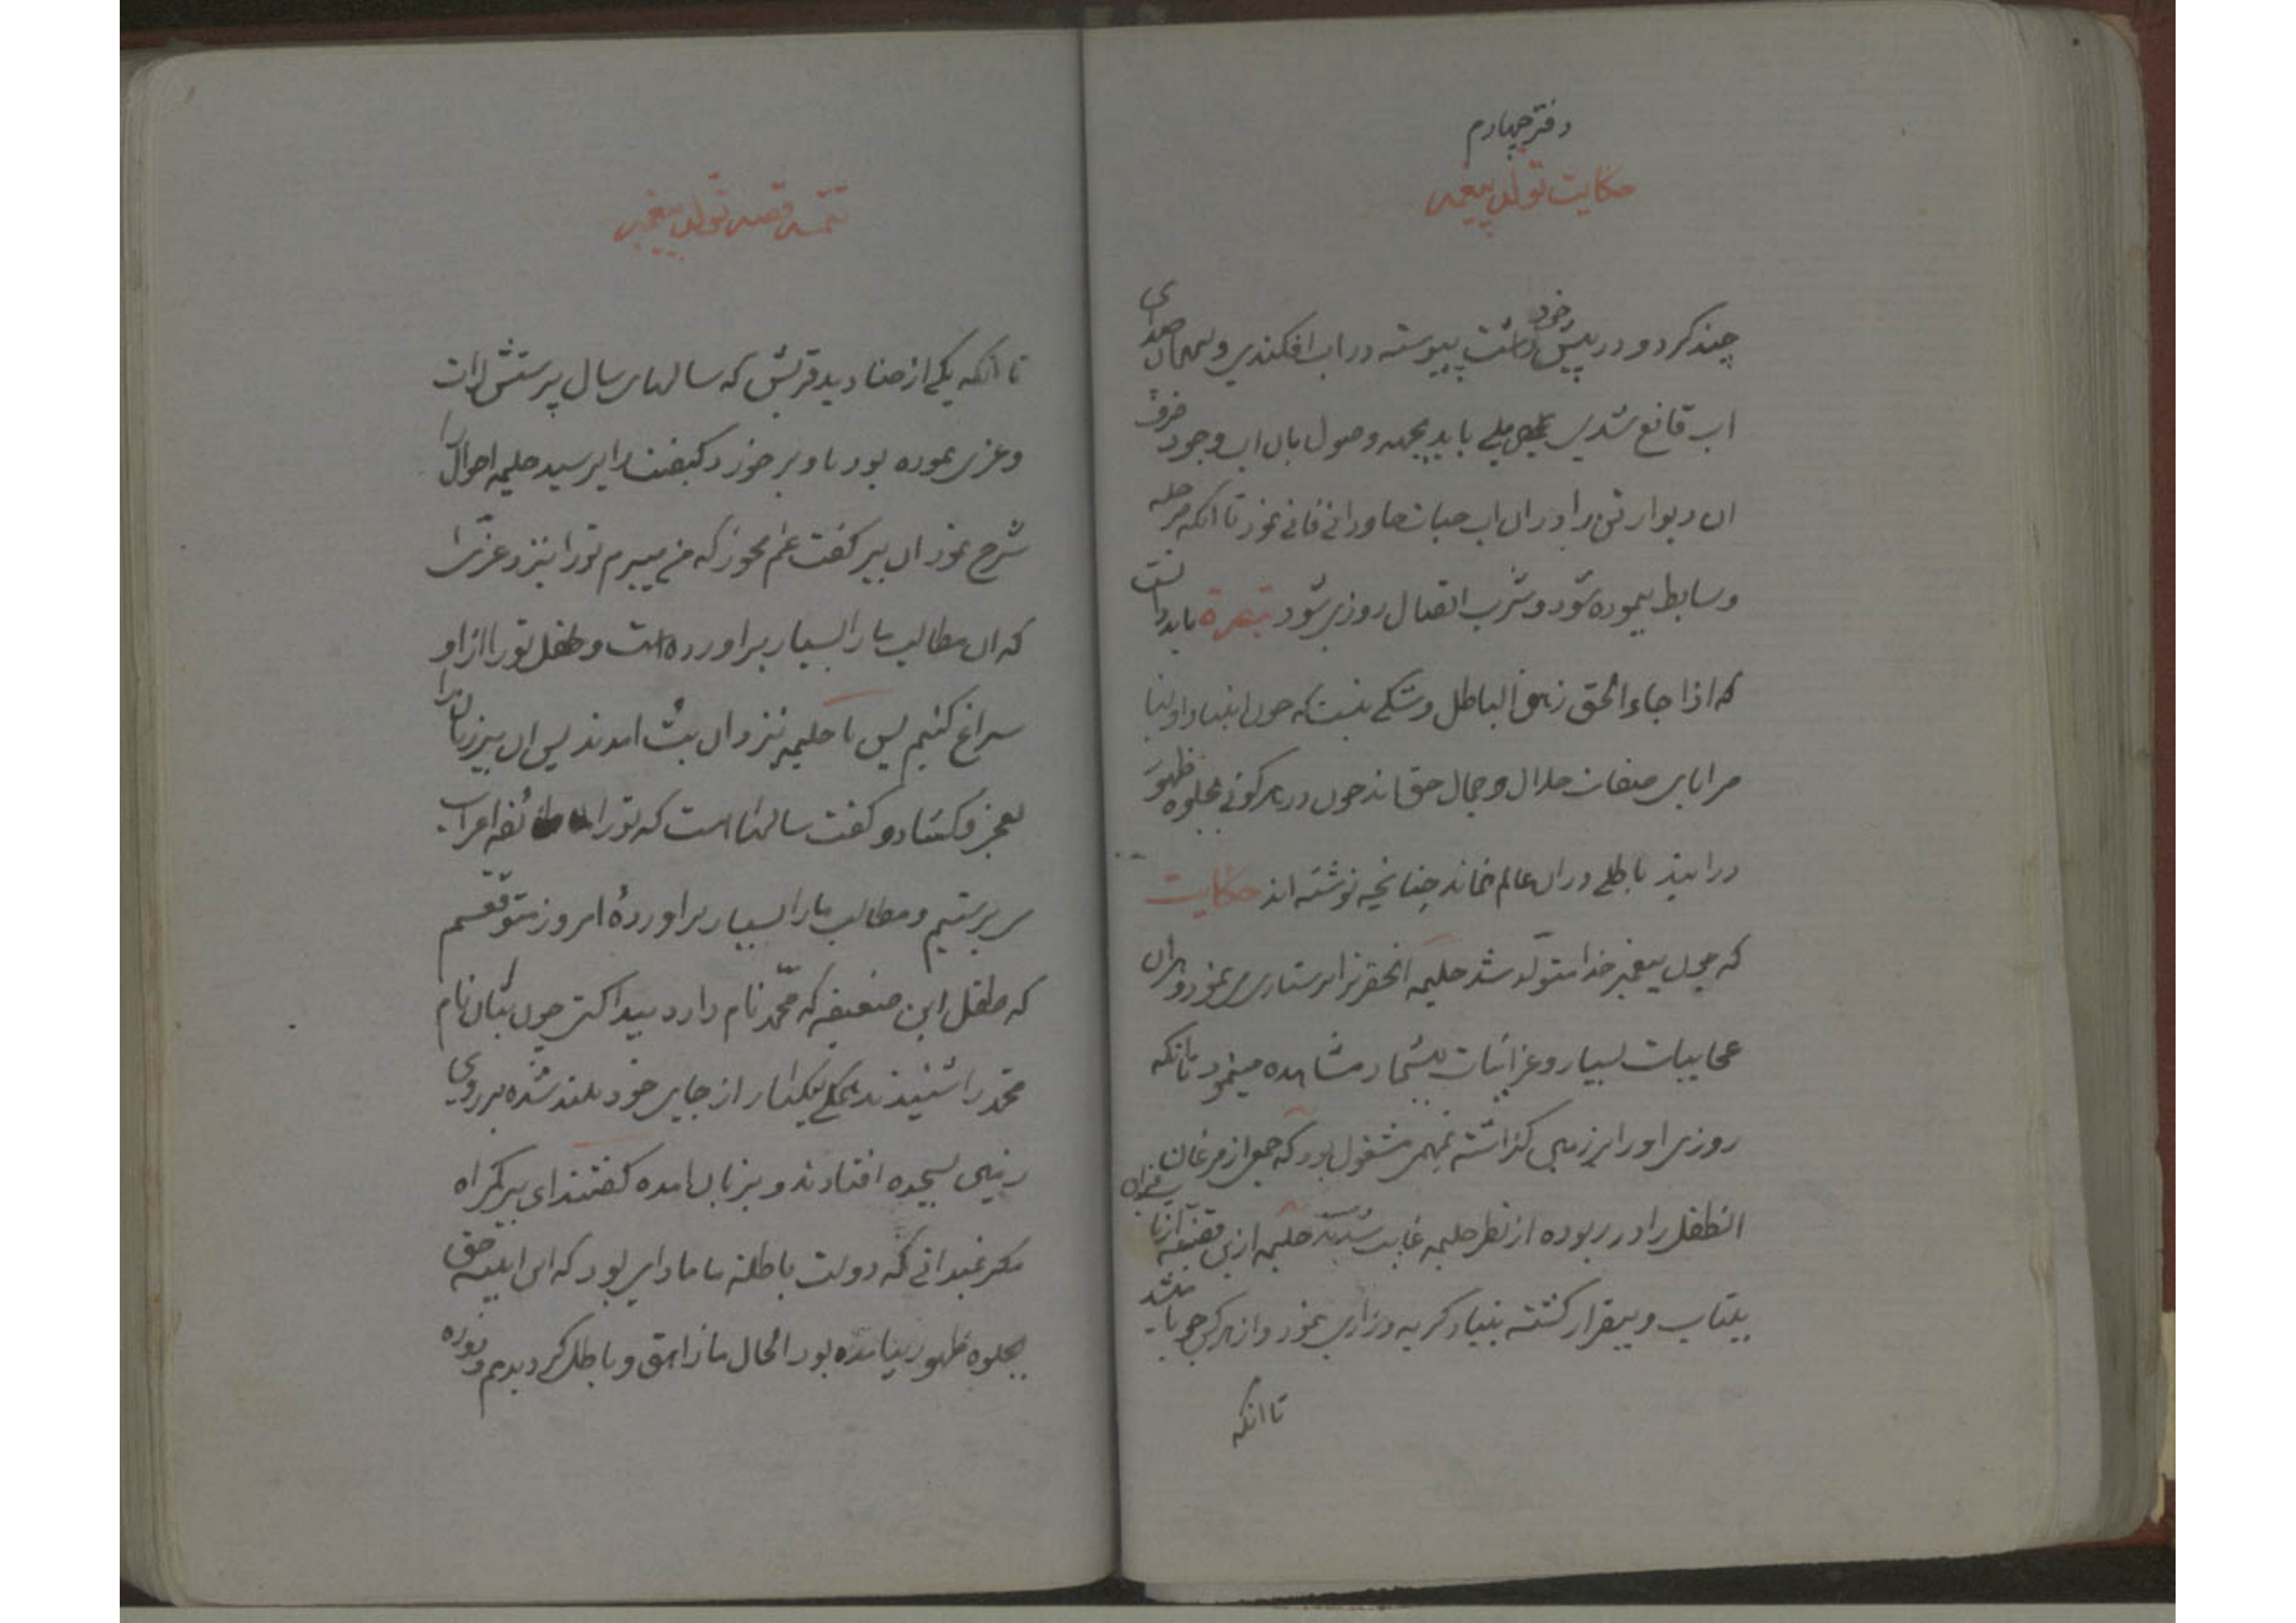 دفتر چهارم
حکایت تولد پیغمبر
چند کرد و در پیش خود داشت پیوسته در اب افکندی و بهمان صدای
اب قانع شدی بلی باید بجهه وصول بان اب وجود خرف
ان دیوار تن را در ان اب حیات جاودانی فانی نمود تا انکه مرحله
وسایط پیموده شود و شرب اتصال روزی شود تبصرة باید دانست
که اذا جاء الحق زهق الباطل و شکی نیست که چون انبیا و اولیا
مرایای صفات جلال و جمال حق اند چون در هر کونی بجلوه ظهور
در ایند باطلی در ان عالم نماند چنانچه نوشته اند حکایت
که چون پیغمبر خدا متولد شد حلیمه انحضرترا پرستاری می نمود و از ان
عجایبات بسیار و غرائبات بیشمار مشاهده مینمود تا انکه
روزی او را بر زمین گذاشته بمهمی مشغول بود که جمعی از مرغان
انطفل را در ربوده از نظر حلیمه غایب شدند حلیمه ازین قضیه
بیتاب و بیقرار کشته بنیاد کریه و زاری نمود و از هر کس جویا میشد
تا انکه
تتمه قصه تولد پیغمبر
تا انکه یکی از صنادید قریش که سالهای سال پرستش لات
و عزی نموده بود باو بر خورد کیفیت را پرسید حلیمه احوال را
شرح نمود ان پیر کفت غم مخور که من میبرم تو را بنزد عزی
که ان مطالب ما را بسیار براورده است و طفل تو را از او
سراغ کنیم پس با حلیمه نزد ان بت امدند پس ان پیر زبان را
بعجز کشاد و کفت سالها است که تو را ما طائفه اعراب
می پرستیم و مطالب ما را بسیار براوردهٔ امروز متوقعیم
که طفل این ضعیفه که محمد نام دارد پیدا کنی چون بتان نام
محمد را شنیدند همکی یکبار از جای خود بلند شده بر روی
زمین بسجده افتادند و بزبان امده کفتند ای پیر کمراه
مکر نمیدانی که دولت باطله ما مادامی بود که این اینه حق
بجلوه ظهور نیامده بود الحال ما زاهق و باطل کردیدیم